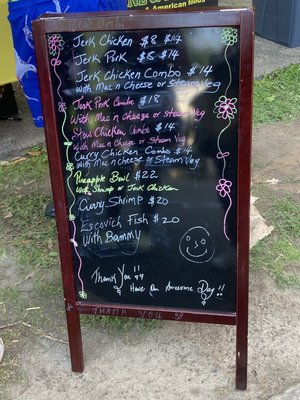 & American Foods
Jerk Chicken $8 $14
Jerk Pork $8 $14
Jerk Chicken Combo $14
With Mac n cheese or steam veg
Jerk Pork Combo $18
With Mac n cheese or steam veg
Stew Chicken Combo $14
With Mac n cheese or steam veg
Curry Chicken Combo $14
With Mac n cheese or Steam Veg
Pineapple Bowl $22
With Shrimp or Jerk Chicken
Curry Shrimp $20
Escovich Fish $20
With Bammy
Thank You !!
Have An Awesome Day !!
THANK YOU